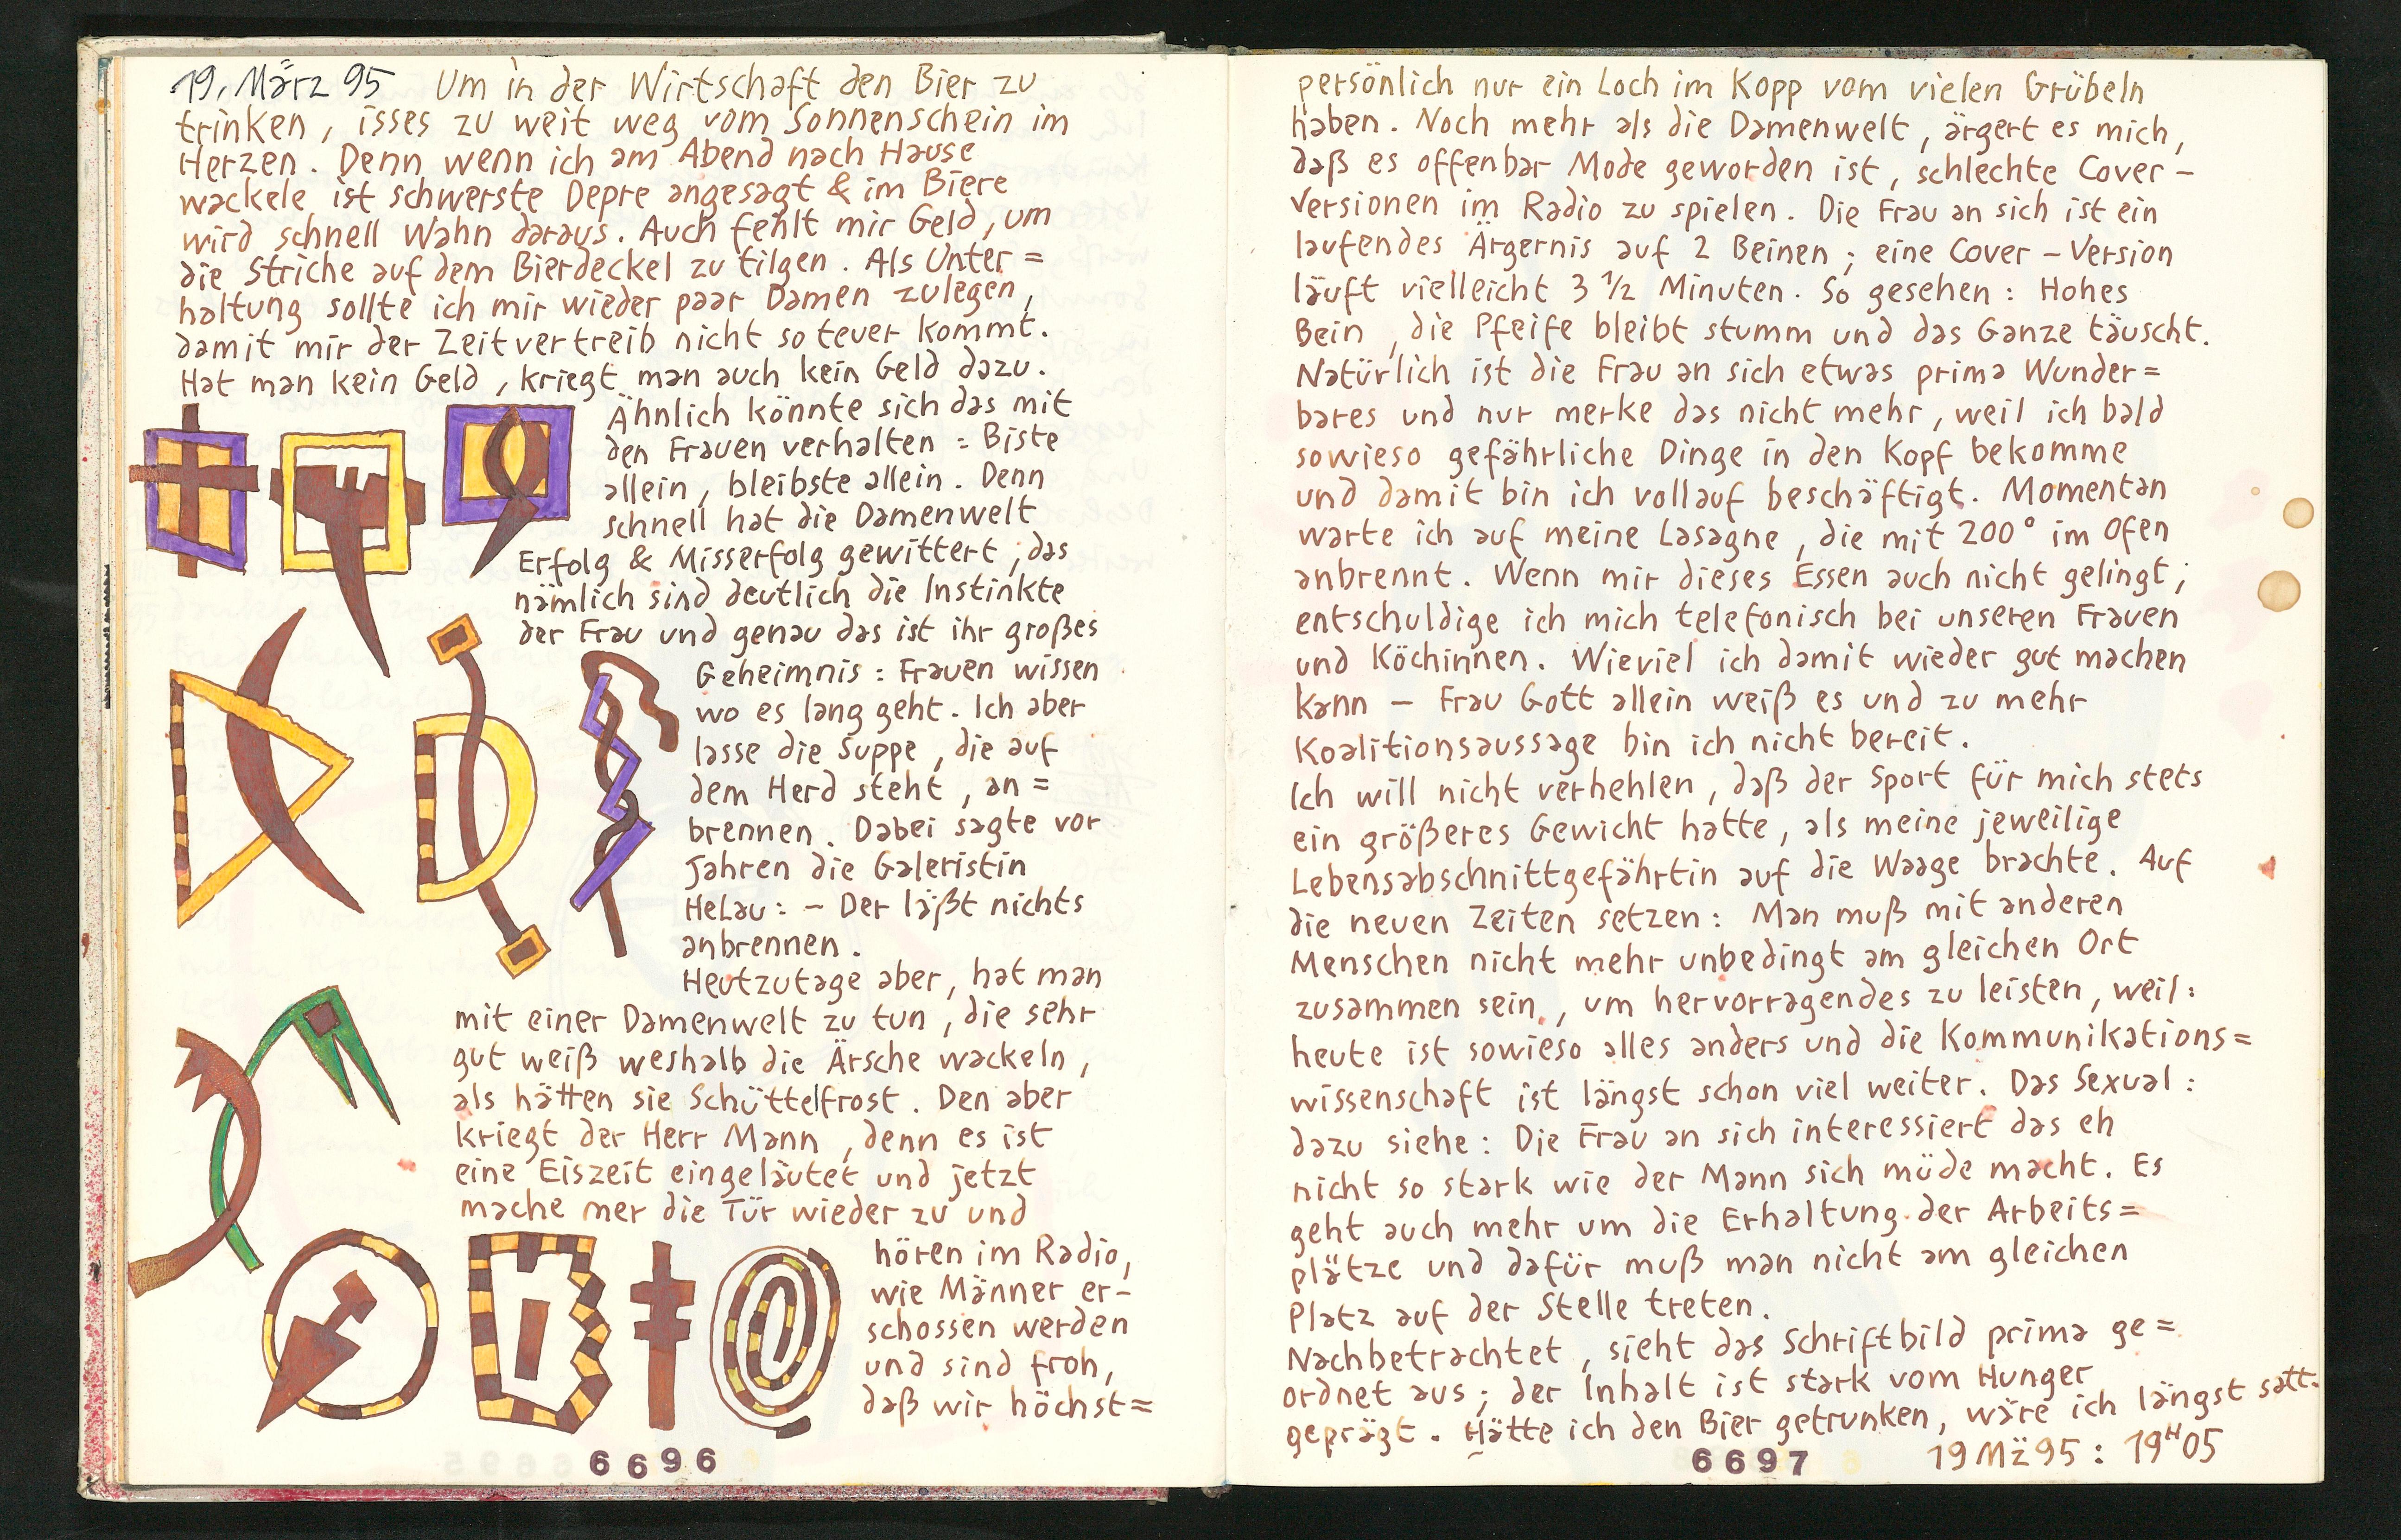 19. März 95 Um in der Wirtschaft den Bier zu
trinken, isses zu weit weg vom Sonnenschein im
Herzen. Denn wenn ich am Abend nach Hause
wackele ist schwerste Depre angesagt & im Biere
wird schnell Wahn daraus. Auch fehlt mir Geld, um
die Striche auf dem Bierdeckel zu tilgen. Als Unter=
haltung sollte ich mir wieder paar Damen zulegen,
damit mir der Zeitvertreib nicht so teuer kommt.
Hat man kein Geld, kriegt man auch kein Geld dazu.
Ähnlich könnte sich das mit
den Frauen verhalten = Biste
allein, bleibste allein. Denn
schnell hat die Damenwelt
Erfolg & Misserfolg gewittert; das
nämlich sind deutlich die Instinkte
der Frau und genau das ist ihr großes
Geheimnis: Frauen wissen
wo es lang geht. Ich aber
lasse die Suppe, die auf
dem Herd steht, an=
brennen. Dabei sagte vor
Jahren die Galeristin
HeLau: – Der läßt nichts
anbrennen.
Heutzutage aber, hat man
mit einer Damenwelt zu tun, die sehr
gut weiß weshalb die Ärsche wackeln,
als hätten sie Schüttelfrost. Den aber
kriegt der Herr Mann, denn es ist
eine Eiszeit eingeläutet und jetzt
mache mer die Tür wieder zu und
hören im Radio,
wie Männer er-
schossen werden
und sind froh,
daß wir höchst=
6696
persönlich nur ein Loch im Kopp vom vielen Grübeln
haben. Noch mehr als die Damenwelt, ärgert es mich,
daß es offenbar Mode geworden ist, schlechte Cover-
Versionen im Radio zu spielen. Die Frau an sich ist ein
laufendes Ärgernis auf 2 Beinen; eine Cover-Version
läuft vielleicht 3 1/2 Minuten. So gesehen: Hohes
Bein, die Pfeife bleibt stumm und das Ganze täuscht.
Natürlich ist die Frau an sich etwas prima Wunder=
bares und nur merke das nicht mehr, weil ich bald
sowieso gefährliche Dinge in den Kopf bekomme
und damit bin ich vollauf beschäftigt. Momentan
warte ich auf meine Lasagne, die mit 200° im Ofen
anbrennt. Wenn mir dieses Essen auch nicht gelingt;
entschuldige ich mich telefonisch bei unseren Frauen
und Köchinnen. Wieviel ich damit wieder gut machen
kann – Frau Gott allein weiß es und zu mehr
Koalitionsaussage bin ich nicht bereit.
Ich will nicht verhehlen, daß der Sport für mich stets
ein größeres Gewicht hatte, als meine jeweilige
Lebensabschnittgefährtin auf die Waage brachte. Auf
die neuen Zeiten setzen: Man muß mit anderen
Menschen nicht mehr unbedingt am gleichen Ort
zusammen sein, um hervorragendes zu leisten, weil:
heute ist sowieso alles anders und die Kommunikations=
wissenschaft ist längst schon viel weiter. Das Sexual:
dazu siehe: Die Frau an sich interessiert das eh
nicht so stark wie der Mann sich müde macht. Es
geht auch mehr um die Erhaltung der Arbeits=
plätze und dafür muß man nicht am gleichen
Platz auf der Stelle treten.
Nachbetrachtet, sieht das Schriftbild prima ge=
ordnet aus; der Inhalt ist stark vom Hunger
geprägt. Hätte ich den Bier getrunken, wäre ich längst satt.
6697 19 Mä 95: 19H05